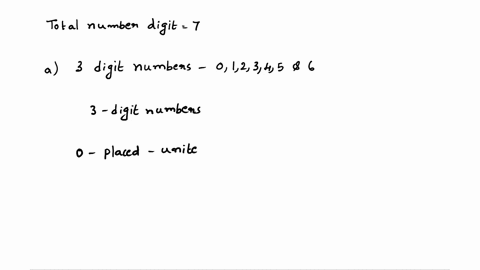 Total number digit = 7
a) 3 digit numbers - 0, 1, 2, 3, 4, 5 & 6
3 - digit numbers
0 - placed - unite